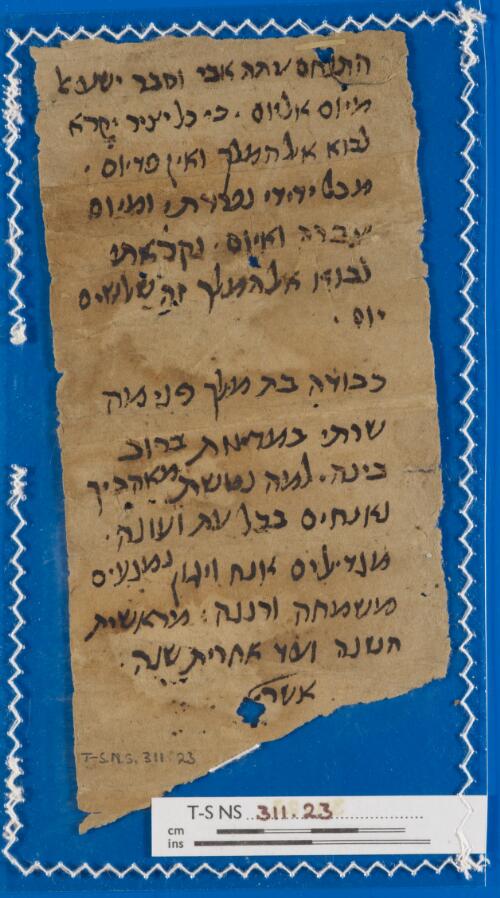 עתה אבי וסבר
מיום אליום · כי כל יציר יקרא
לבוא אל המלך ואין פדיום ·
מכל ידידי נפרדתי ומיום
עברה ואיום · נקראתי
לבוא אל המלך זה שלושים
יום ·
כבודה בת מלך פנימה
שרתי במדינות ברוב
בינה · למה נטשת מאהביך
נאנחים בכל עת ועונה ·
מגדילים אנח ויגון נמנעים
משמחה ורננה · מראשית
השנה ועד אחרית שנה ·
אשרי
T-S N.S. 311.23
T-S NS 311.23
cm
ins